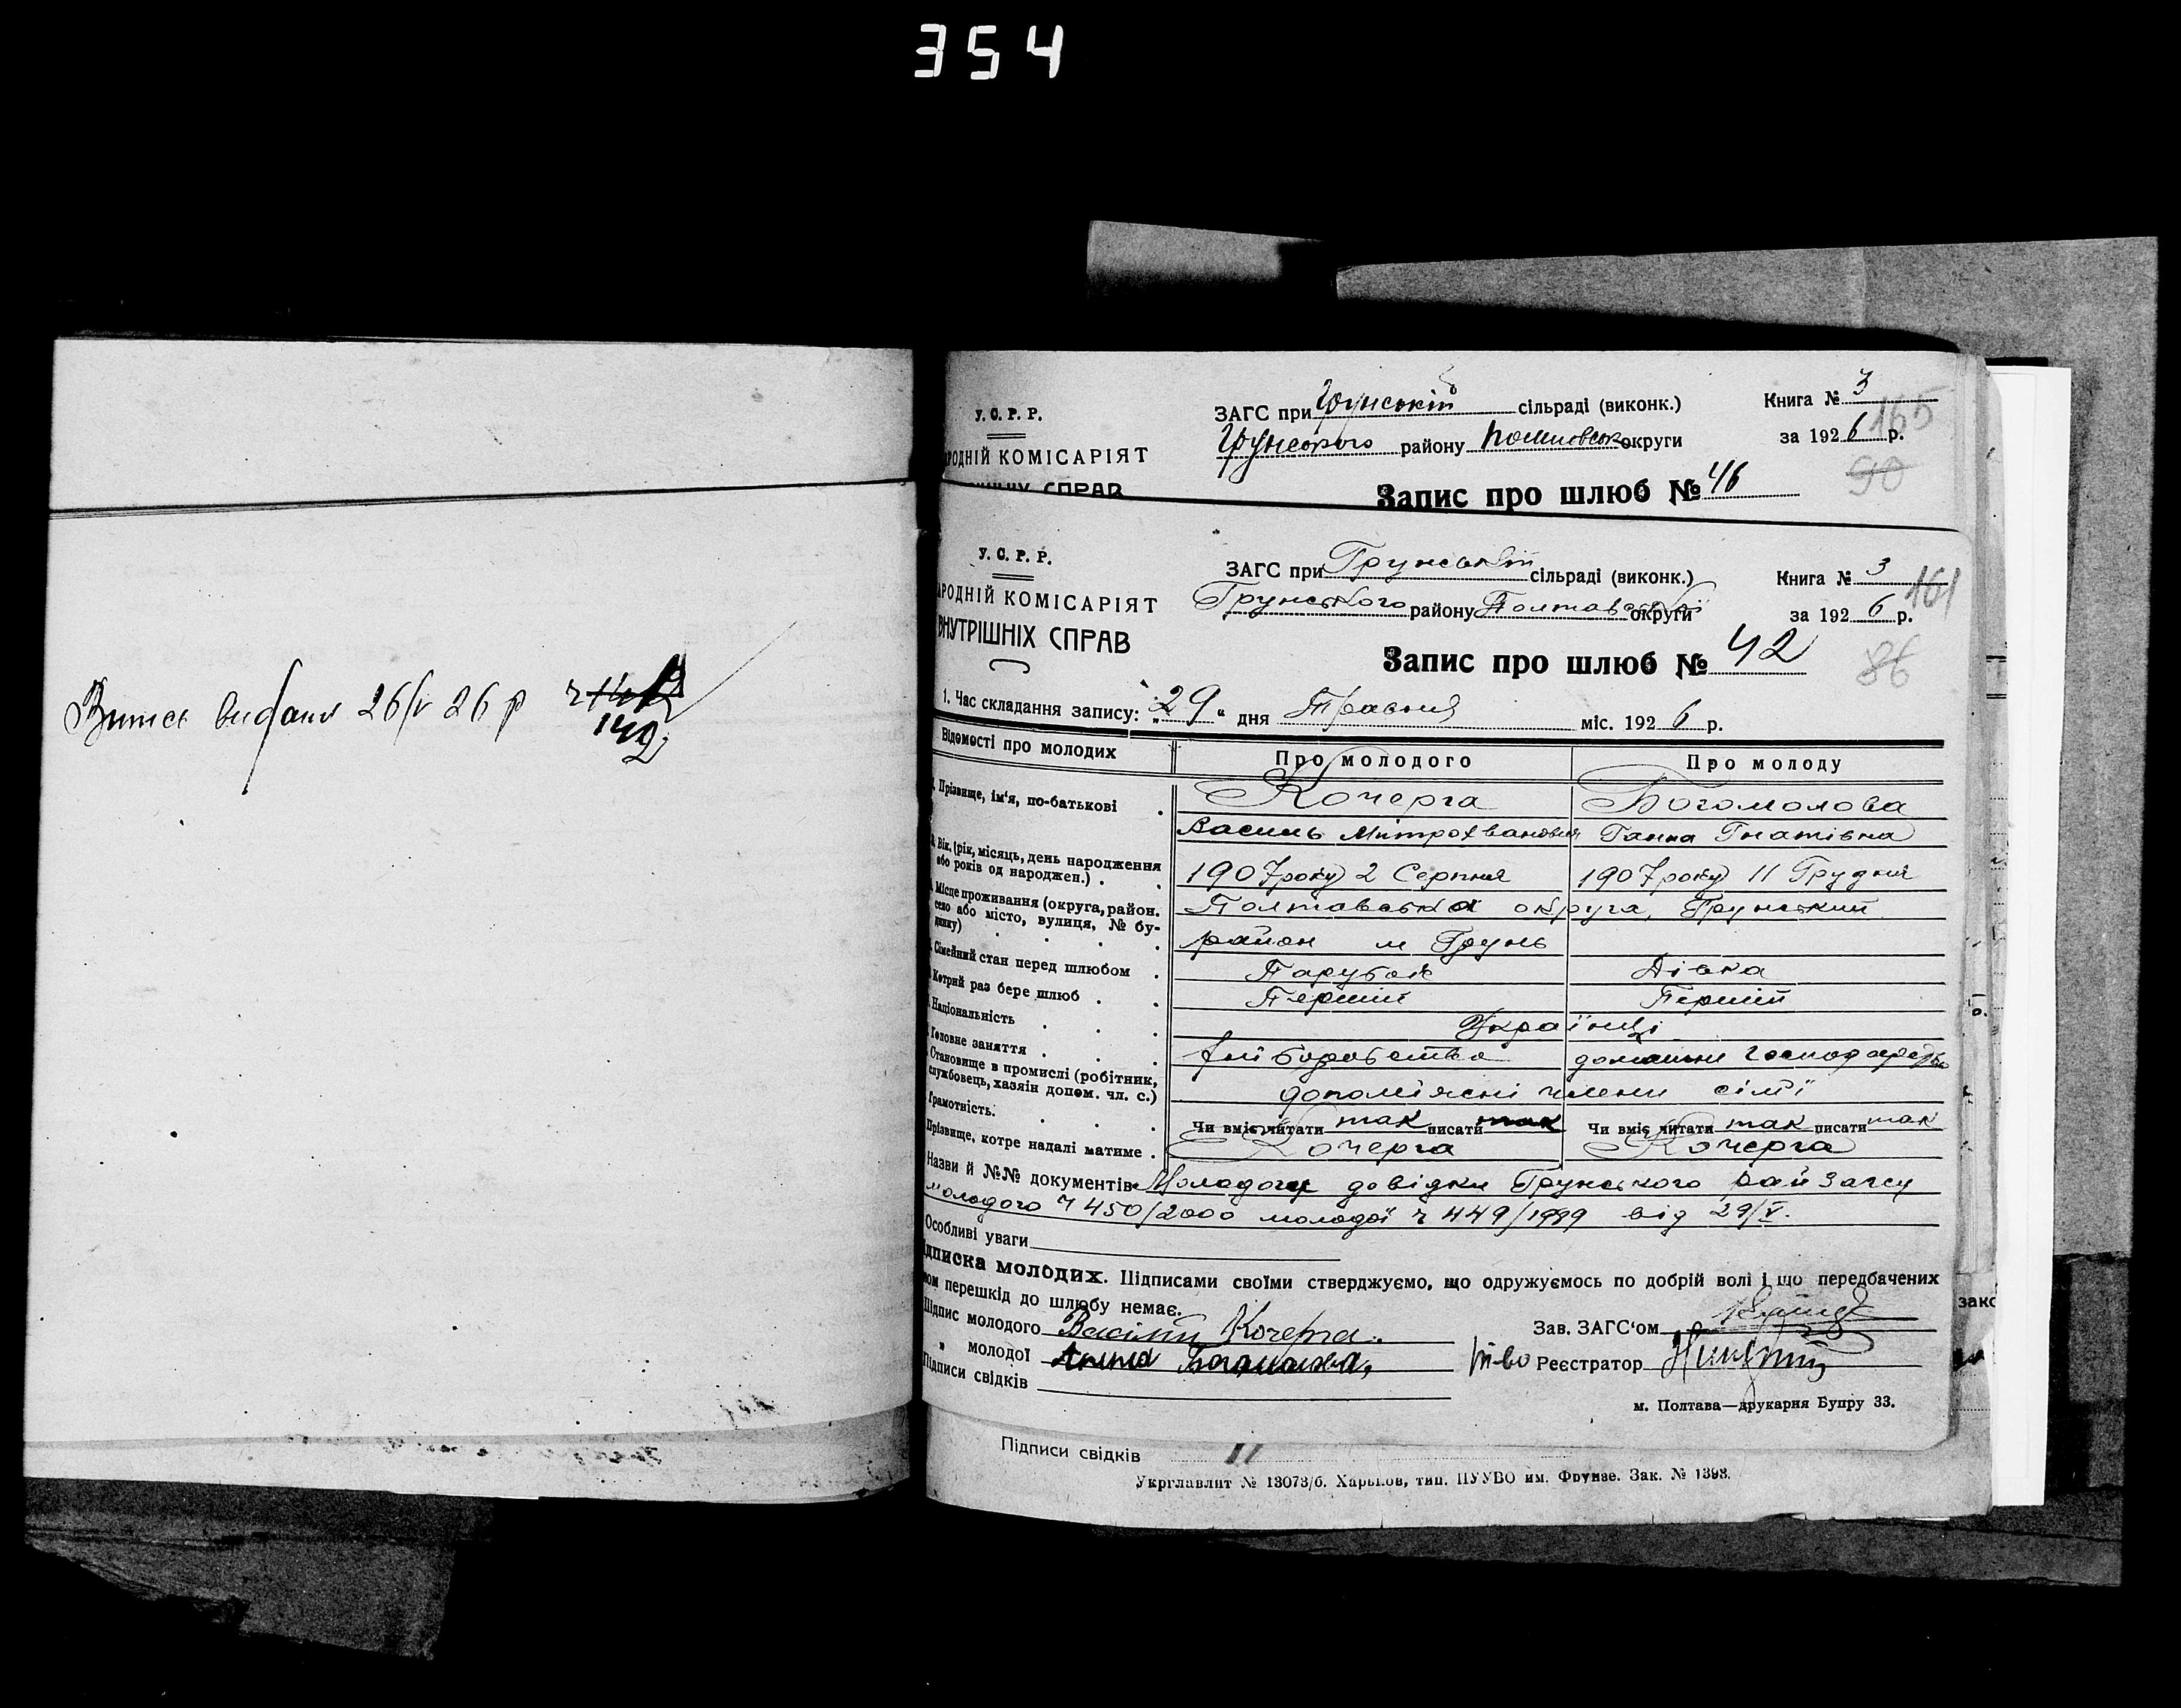 354
Випис видано 26/V 26 р ч
142
У. С. Р. Р.
РОДНІЙ КОМІСАРІЯТ
СПРАВ
ЗАГС при Грунській сільраді (виконк.)
Грунського району Полтавськ округи
Книга № 3
165
за 1926 р.
90
Запис про шлюб № 46
У. С. Р. Р.
АРОДНІЙ КОМІСАРІЯТ
ВНУТРІШНІХ СПРАВ
ЗАГС при Грунській сільраді (виконк.)
Грунського району Полтавської округи
Книга № 3
161
за 1926 р.
86
Запис про шлюб № 42
1. Час складання запису: „29“ дня Травня міс. 1926 р.
Відомості про молодих
Про молодого
Про молоду
Прізвище, ім'я, по-батькові
Кочерга
Богомолова
Василь Митрохванович
Ганна Гнатівна
Вік. (рік, місяць, день народження або років од народжен.)
1907 року 2 Серпня
1907 року 11 Грудня
Місце проживання (округа, район. село або місто, вулиця, № будинку)
Полтавська округа, Грунський
район м Грунь
Сімейний стан перед шлюбом
Парубок
Дівка
Котрий раз бере шлюб
Перший
Перший
Національність
Українці
Головне заняття
хліборобство
домашнє господарство
Становище в промислі (робітник, службовець, хазяїн допом. чл. с.)
допомічні члени сім'ї
Грамотність.
Чи вміє читати так писати так
Чи вміє читати так писати так
Прізвище, котре надалі матиме
Кочерга
Кочерга
Назви й №№ документів Молодого довідки Грунського райЗагсу
молодого Ч 450/2000 молодої ч 449/1999 від 29/V.
Особливі уваги
дписка молодих. Підписами своїми стверджуємо, що одружуємось по добрій волі і що передбачених
зако
ном перешкід до шлюбу немає.
Підпис молодого Василій Кочерга.
Зав. ЗАГС'ом
„ молодої Богомолова
Реєстратор
Підписи свідків
м. Полтава—друкарня Бупру 33.
Підписи свідків
Укрглавлит № 13073/б. Харьков, тип. ПУУВО им. Фрунзе. Зак. № 1398.